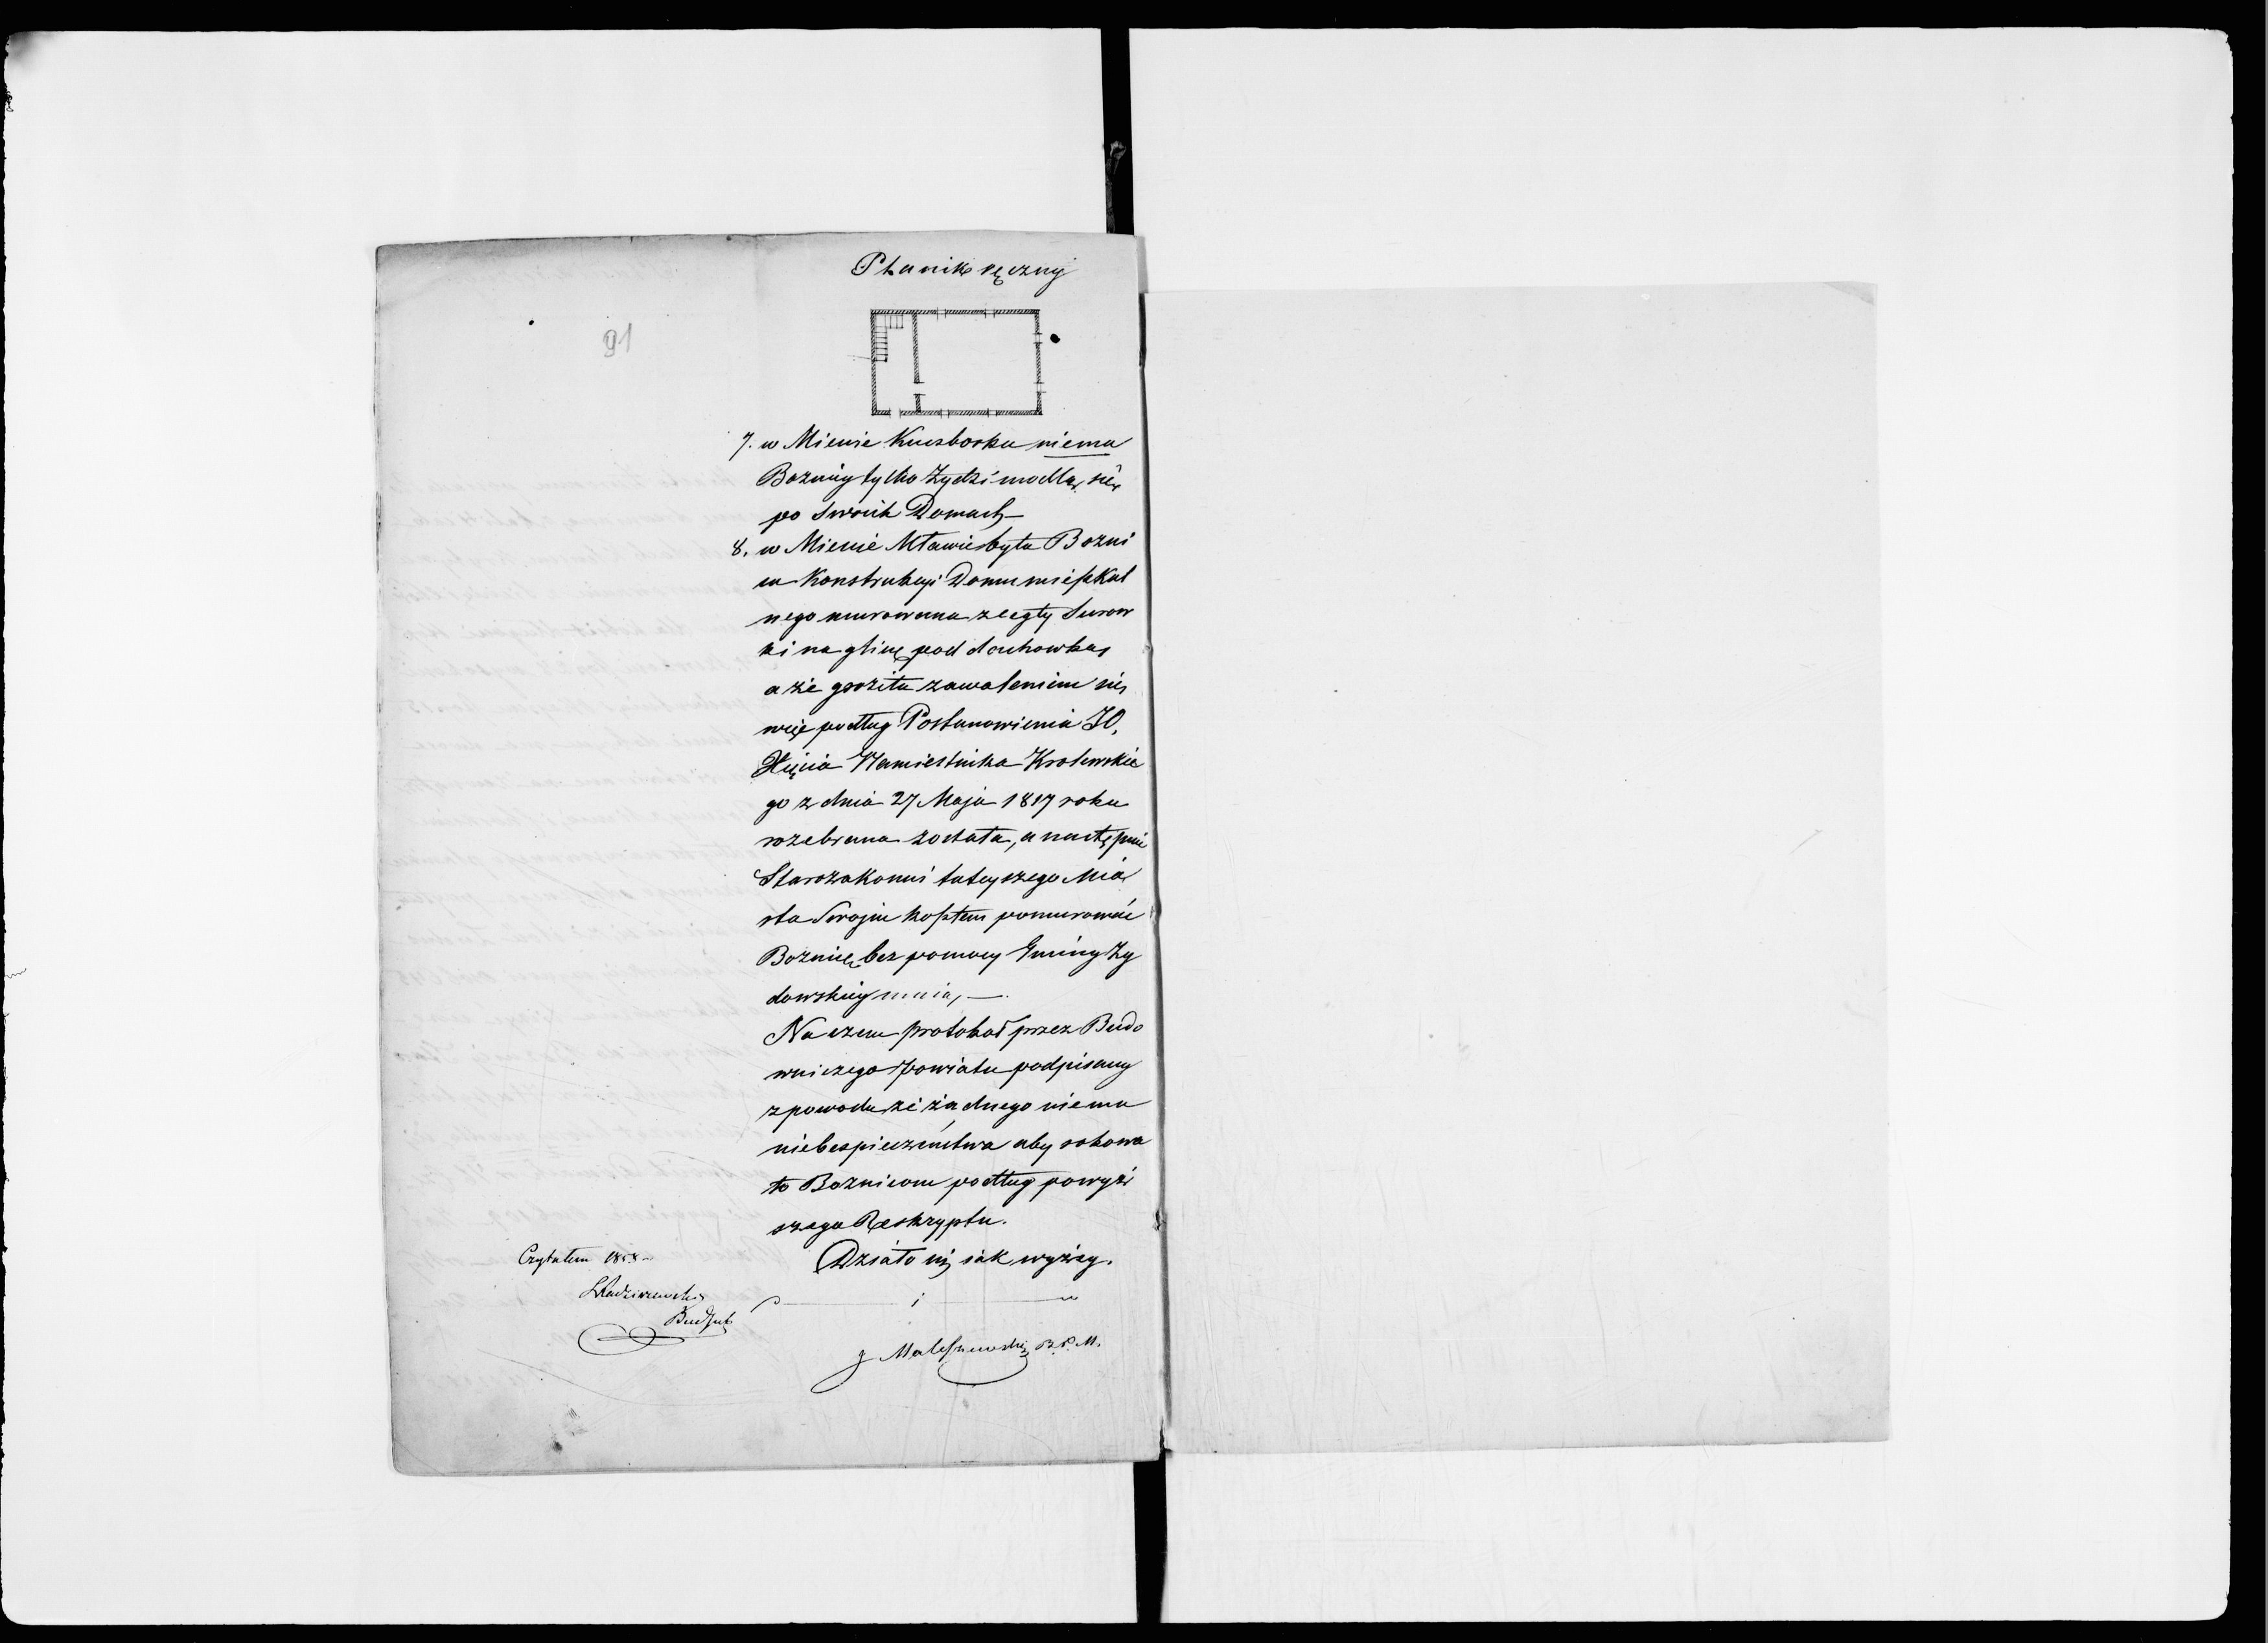 Planik ręczny
91
7. w Mieście Kuczborku niema
Bożnicy tylko Żydzi modlą się
po Swoich Domach
8. w Mieście Mławie była Bożni
ca Konstrukcyi Domu mieszkal
nego murowana z cegły Surow
ki na glinę pod dachowką
a że groziła zawaleniem się
więc podług Postanowienia JO.
Xięcia Namiestnika Krolewskie
go z dnia 27 Maja 1817 roku
rozebrana została, a następnie
Starozakonni tuteyszego Mia
sta Swojim kosztem pomurować
Bożnicę bez pomocy Gminy Ży
dowskiey
Na czem protokoł przez Budo
wniczego Powiatu podpisany
z powodu że żadnego niema
niebespieczeństwa aby
to Bożnicom podług powyż
szego Reskryptu.
Działo się jak wyżey.
Czytałem
Maleszewski B.P.M.